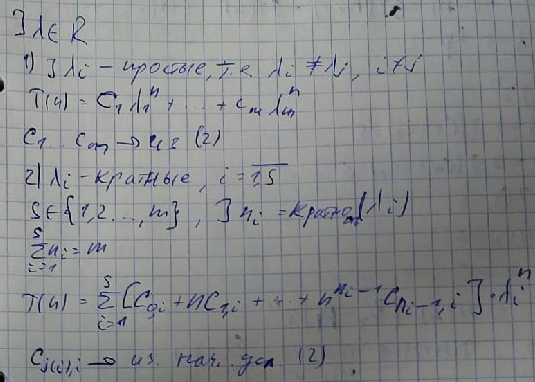 ∃ λ ∈ R
1) ∃ λi – простые, т.е. λi ≠ λj, i≠j
T(n) = C₁λ₁ⁿ + ... + Cmλmⁿ
C₁ ... Cm → из (2)
2) λi – кратные, i = 1,S
S ∈ {1,2 ..., m}, ∃ ni = кратно(λi)
∑ᵢ₌₁ˢ ni = m
T(n) = ∑ᵢ₌₁ˢ [C₀,i + nC₁,i + ... + n^(ni-1) C(ni-1),i] · λiⁿ
Cj(i),i → из нач. усл. (2)